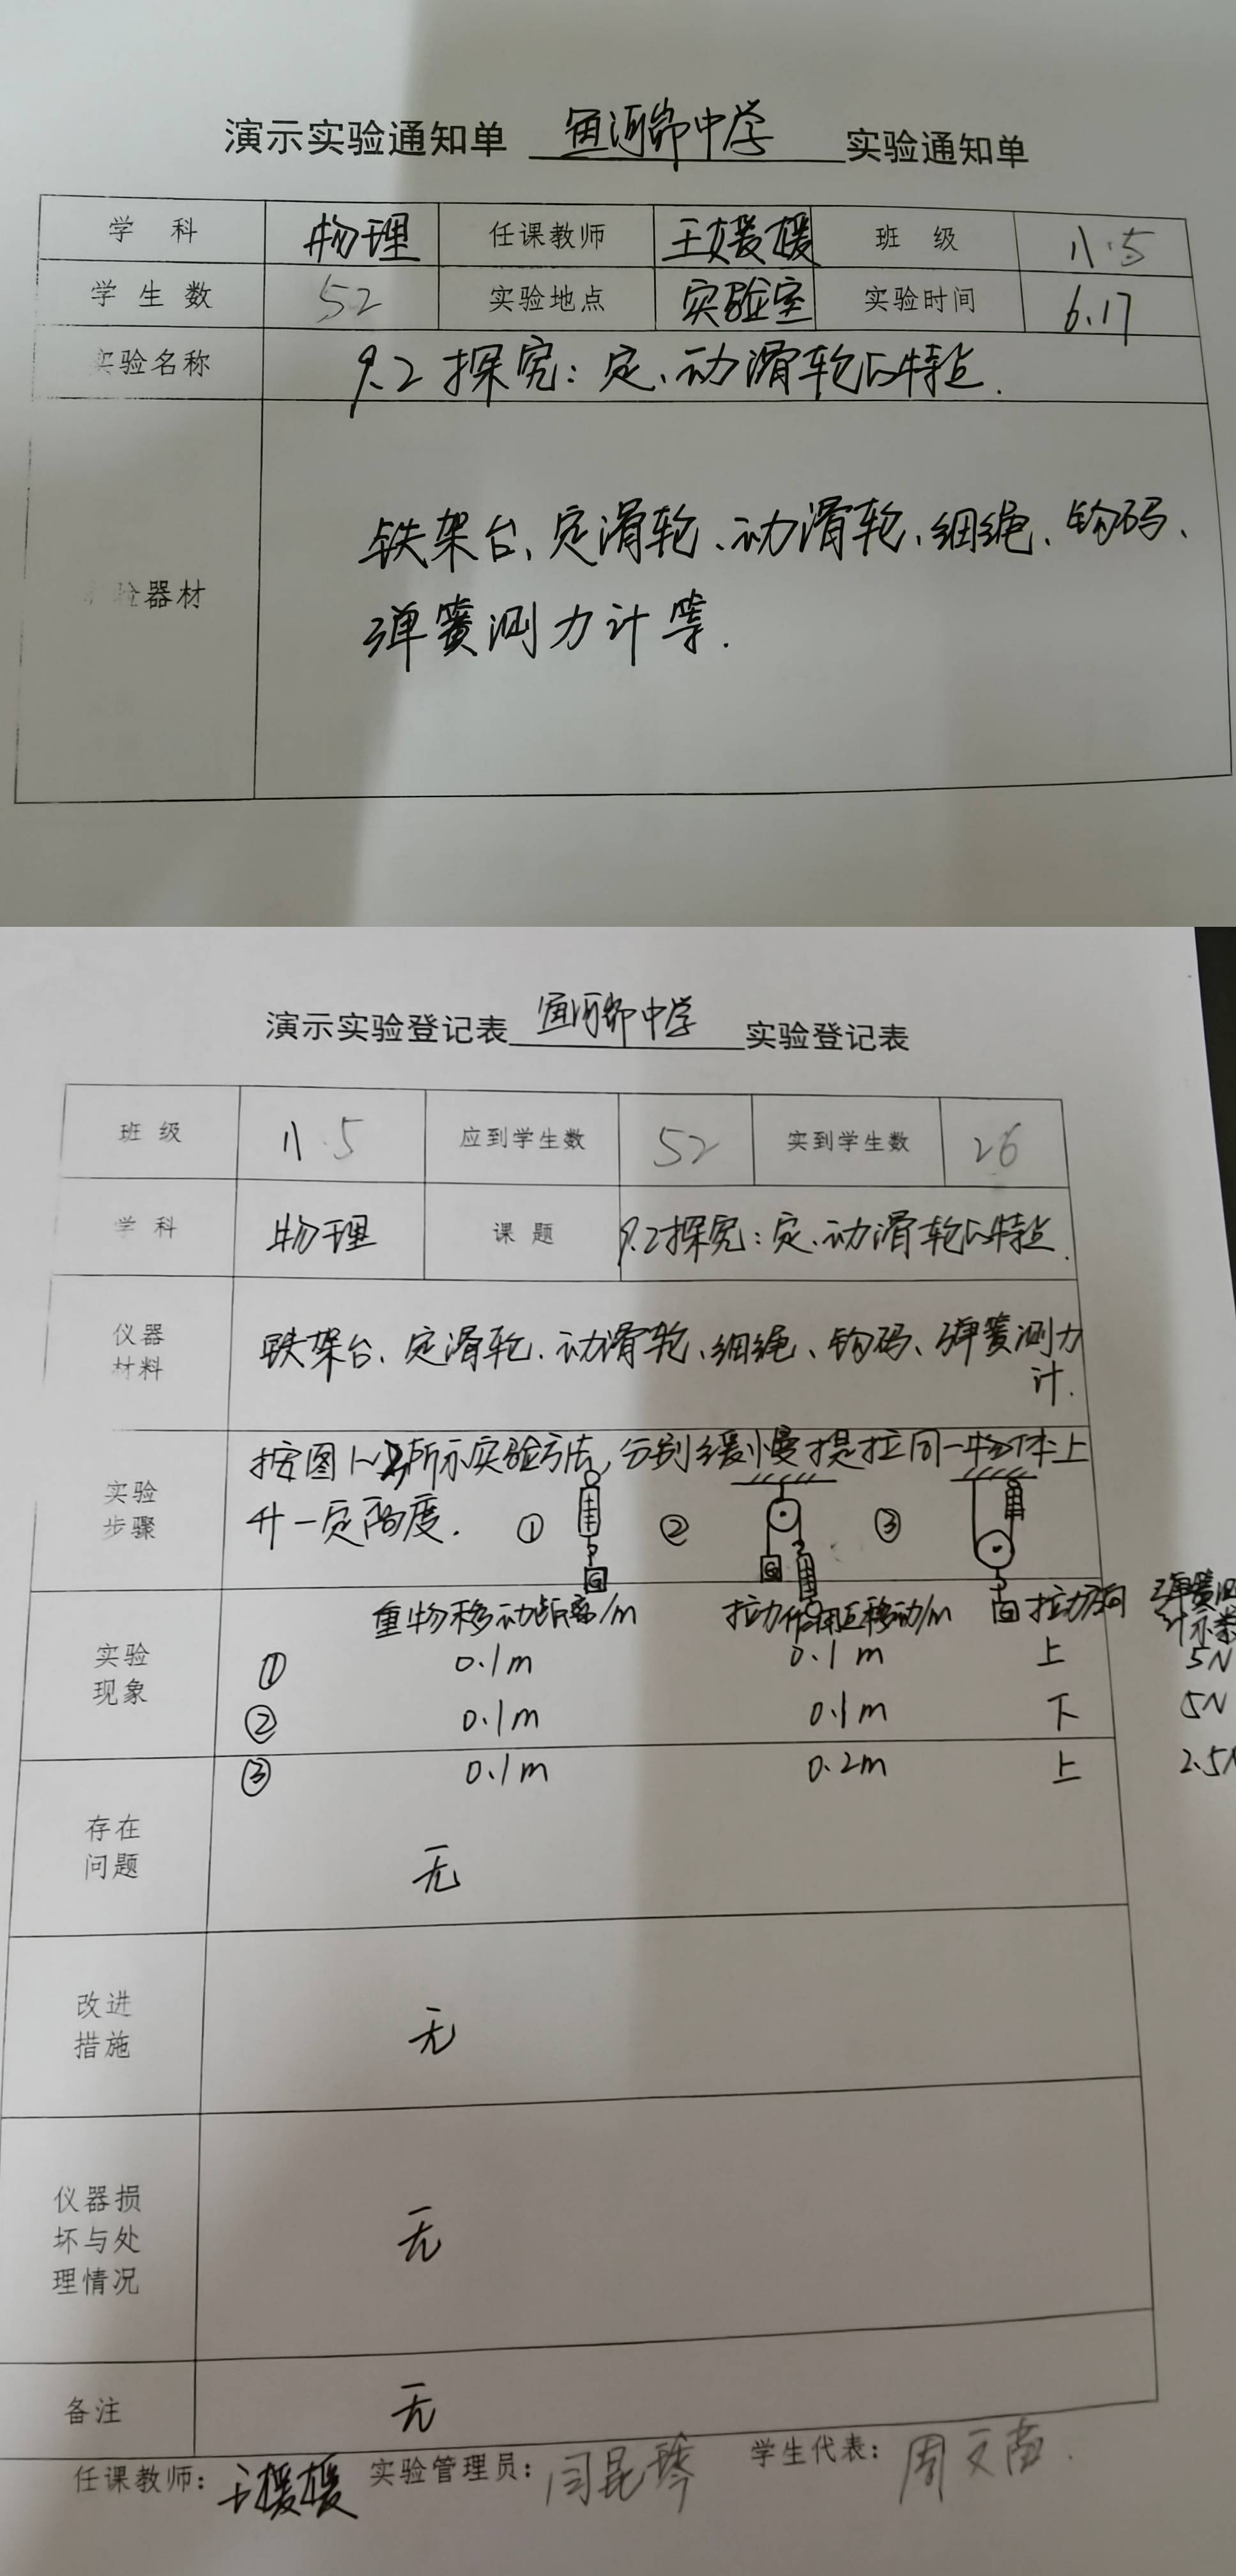 演示实验通知单 鱼河峁中学 实验通知单
学 科 物理 任课教师 王媛媛 班 级 八.5
学 生 数 52 实验地点 实验室 实验时间 6.17
实验名称 9.2 探究:定、动滑轮的特点.
铁架台、定滑轮、动滑轮、细绳、钩码、
验器材
弹簧测力计等.
演示实验登记表 鱼河峁中学 实验登记表
班 级 八.5 应到学生数 52 实到学生数 26
学 科 物理 课 题 9.2探究:定、动滑轮的特点.
仪器
材料
铁架台、定滑轮、动滑轮、细绳、钩码、弹簧测力
计.
实验
步骤
按图1~3所示实验方法,分别缓慢提拉同一物体上
升一定高度. ① ② ③
G G
实验
现象
重物移动距离/m 拉力作用点移动/m 拉力方向 弹簧测
计示数
① 0.1m 0.1m 上 5N
② 0.1m 0.1m 下 5N
③ 0.1m 0.2m 上 2.5N
存在
问题
无
改进
措施
无
仪器损
坏与处
理情况
无
备注 无
任课教师: 王媛媛 实验管理员: 闫昆 学生代表: 周文